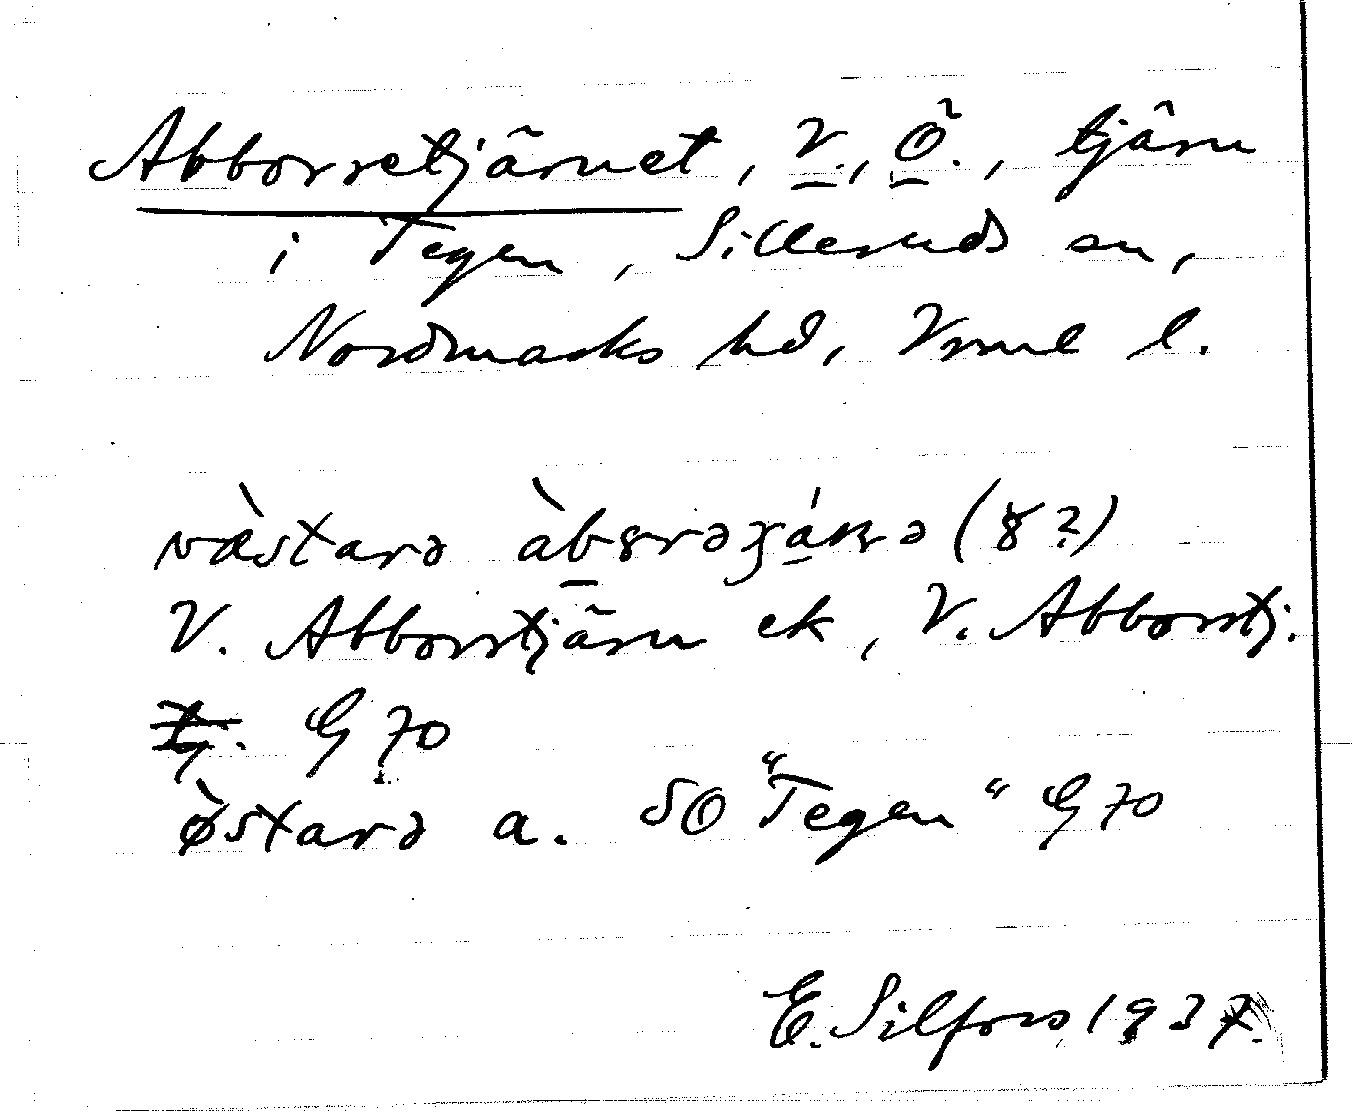 Abborretjärnet, V., Ö., tjärn
i Tegen, Silleruds sn,
Nordmarks hd, Vrml l.
væ̀starə (8?)
V. Abborrtjärn ek, V. Abborrtj.
G 70
ø̀starə a. SO "Tegen" G 70
E. Silfors 1937.